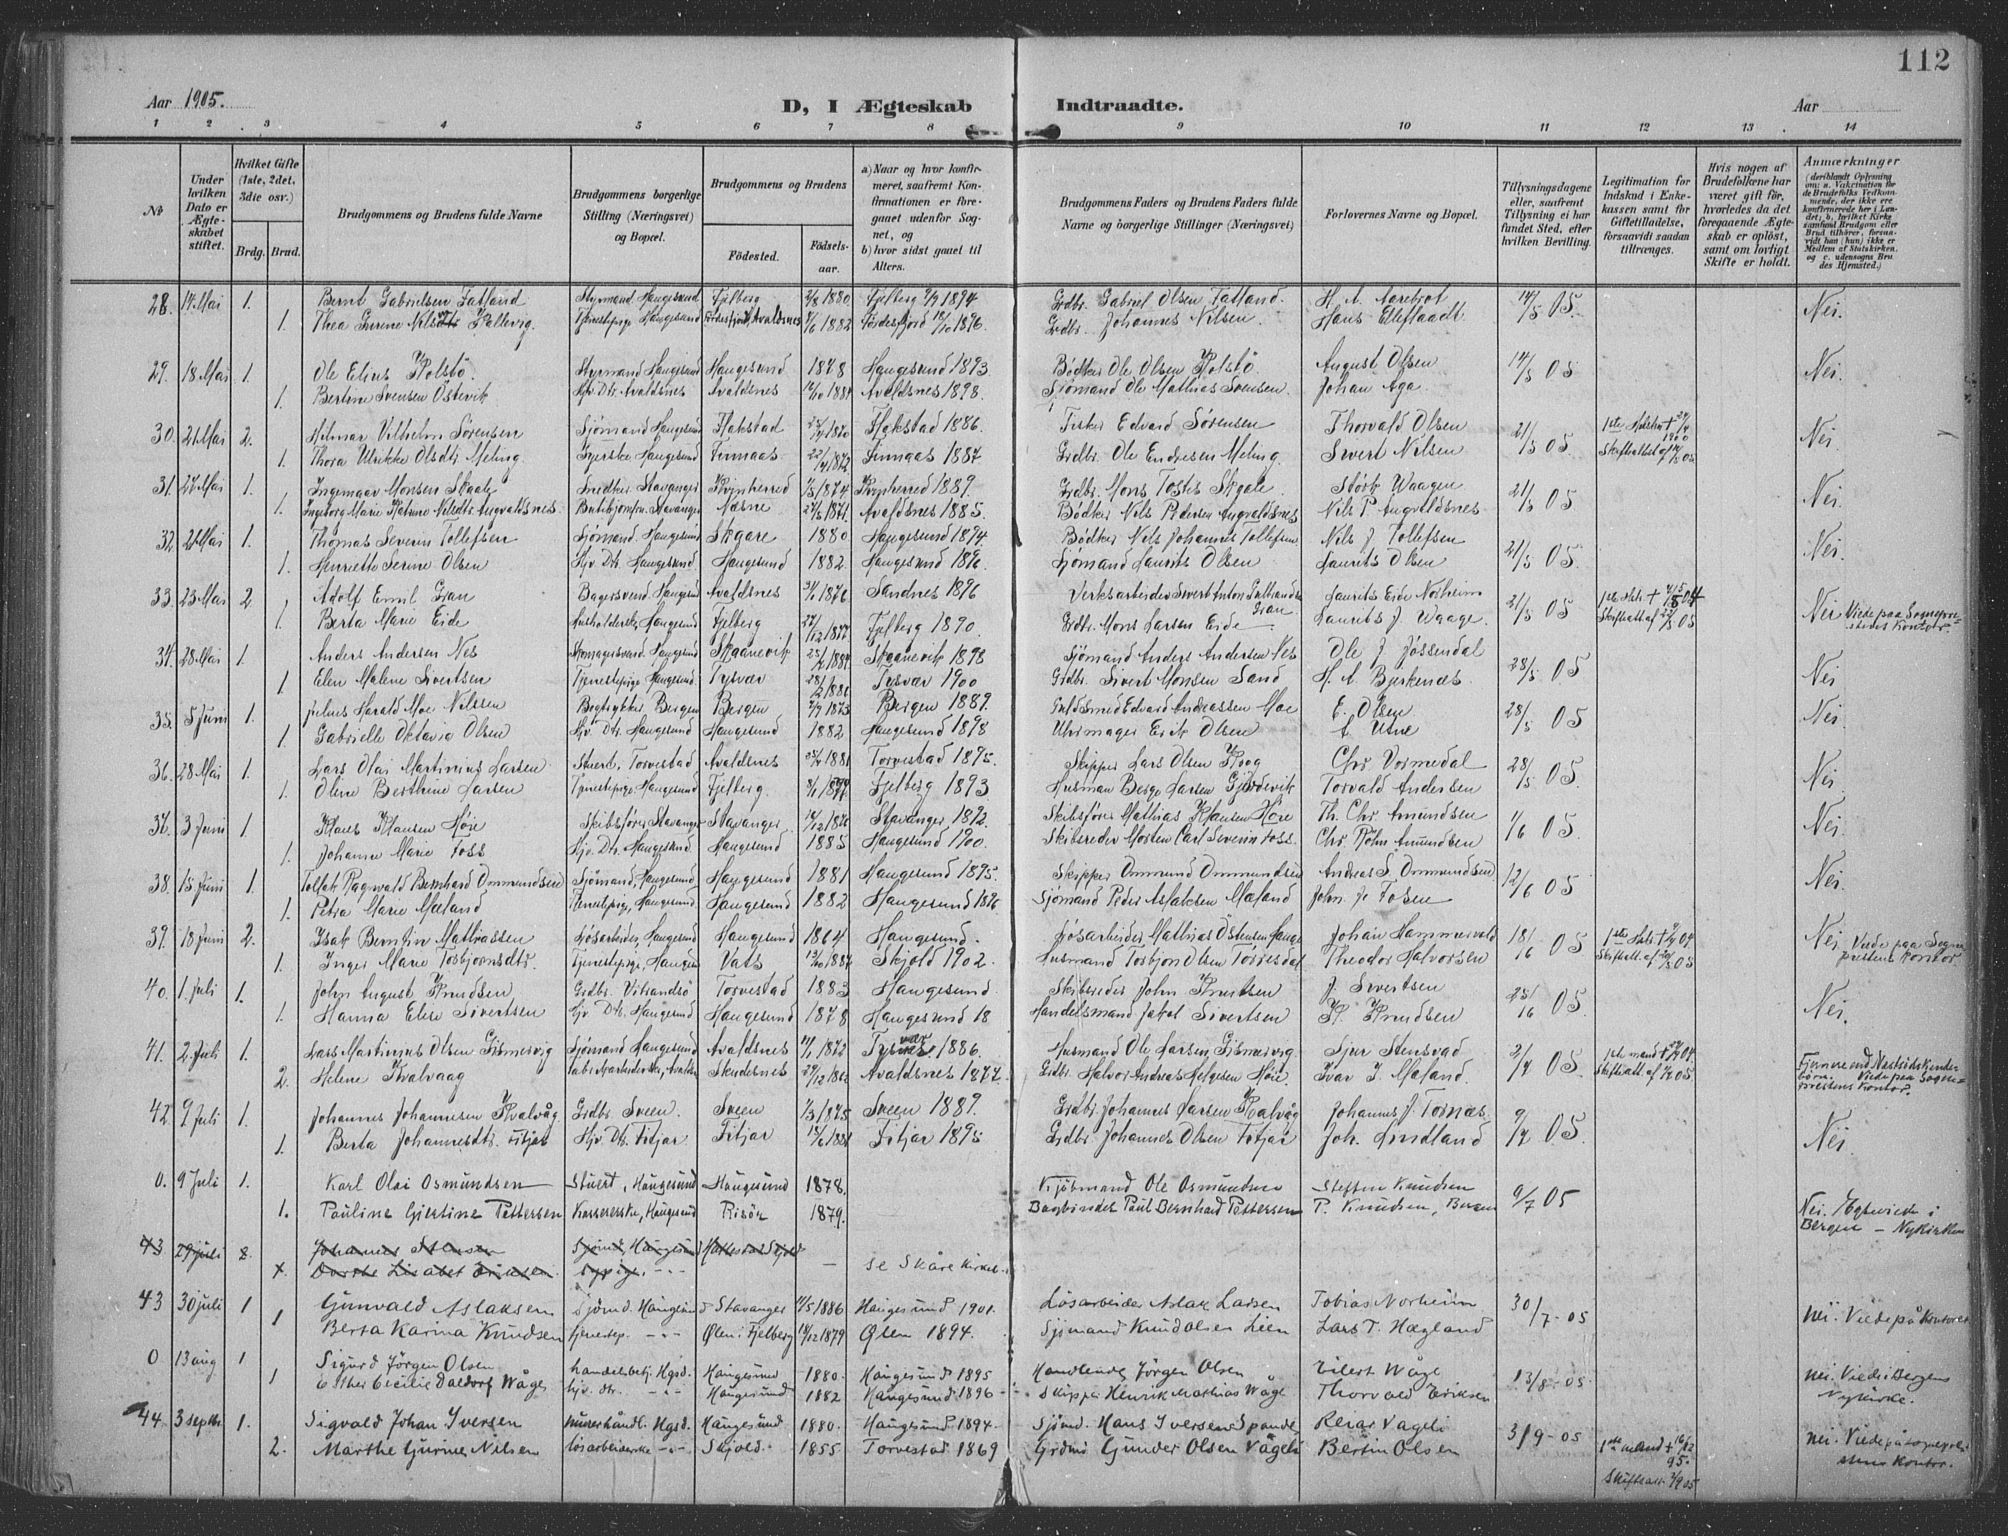 112
Aar 1905.
D, I Ægteskab Indtraadte.
Aar
1 2 3 4 5 6 7 8 9 10 11 12 13 14
No
Under hvilken Dato er Ægteskabet stiftet.
Hvilket Gifte (1ste, 2det, 3die osv.)
Brdg. Brud.
Brudgommens og Brudens fulde Navne
Brudgommens borgerlige Stilling (Næringsvei) og Bopæl.
Brudgommens og Brudens
Fødested. Fødselsaar.
a) Naar og hvor konfirmeret, saafremt Konfirmationen er foregaaet udenfor Sognet, og
b) hvor sidst gaaet til Alters.
Brudgommens Faders og Brudens Faders fulde Navne og borgerlige Stillinger (Næringsvei)
Forlovernes Navne og Bopæl.
Tillysningsdagene eller, saafremt Tillysning ei har fundet Sted, efter hvilken Bevilling.
Legitimation for Indskud i Enkekassen samt for Giftetilladelse, forsaavidt saadan tiltrænges.
Hvis nogen af Brudefolkene har været gift før, hvorledes da det foregaaende Ægteskab er opløst, samt om lovligt Skifte er holdt.
Anmærkninger (deriblandt Oplysning om: a. Vakcination for de Brudefolks Vedkommende, der ikke ere konfirmerede her i Landet; b. hvilket Kirkesamfund Brudgom eller Brud tilhører, forsaavidt han (hun) ikke er Medlem af Statskirken, og c. udensogns Brudes Hjemsted.)
28. 14 Mai 1. Bernt Gabrielsen Tatland Styrmand Haugesund Fjelberg 2/8 1880 Fjelberg 1894 Grdbr. Gabriel Olsen Tatland. H. A. Aarebrot 14/5 05. Nei.
1. Thea Gurine Nilsdtr Kallevig Tjenestepige Haugesund Avaldsnes 1882 Førdesfjord 1896. Grdbr. Johannes Nilsen. Hans Ellefstadt
29. 18 Mai 1. Ole Elius Kolstø. Styrmand Haugesund Haugesund 1878 Haugesund 1893 Bødker Ole Olsen Kolstø August Olsen 14/5 05 Nei.
1. Bertine Svensen Østevik Hjv. Dtr. Avaldsnes Avaldsnes Avaldsnes 1898. Sjømand Ole Mathias Svensen Johan Aga
30. 21 Mai 2. Hilmar Vilhelm Sørensen Sjømand Haugesund Flakstad Flakstad 1886. Fisker Edvard Sørensen Thorvald Olsen 21/5 05 1ste Hustr + 1900 Nei
1. Thora Ulrikke Olsdtr Meling. Haugesund Finnaas 1872 Finnaas 1887 Grdbr. Ole Endresen Meling. Sivert Nilsen Skifteattest af
31. 27 Mai 1. Ingemaar Monsen Skaale Snedker Stavanger Kvinherred 1874 Kvinherred 1889. Grdbr. Mons Skaale Størk Waagen 21/5 05 Nei.
1. Ingeborg Marie Nilsdtr Augvaldsnes. Butikjomfru Stavanger Næsne 1871. Avaldsnes 1885. Bødker Nils Pedersen Augvaldsnes Nils P. Augvaldsnes
32. 21 Mai 1. Thomas Severin Tollefsen Sjømand. Haugesund Skaare 1880 Haugesund 1894. Bødker Nils Johannes Tollefsen Nils J. Tollefsen 21/5 05 Nei.
1. Henriette Serine Olsen Hjv. Dtr. Haugesund. Haugesund 1882. Haugesund 1896. Sjømand Laurits Olsen Laurits Olsen
33. 23 Mai 2. Adolf Emil Gran Bagersvend. Haugesund Avaldsnes 1870 Sandnes 1896 Verksarbeider Sivert Anton Gran Laurits Eide Norheim 21/5 05 1ste Hstr. + Nei Viede paa Sogneprestens Kontor.
1. Berta Marie Eide Haugesund Fjelberg 1877 Fjelberg 1890. Grdbr. Mons Larsen Eide Laurits J. Waage. Skifteatt af 22/5 05
34. 28 Mai 1. Anders Andersen Nes Haugesund Skaanevik 25/4 1884 Skaanevik 1898 Sjømand Anders Andersen Nes Ole J. Jøssendal 28/5 05 Nei
1 Elen Malene Sivertsen Tjenestepige Haugesund Tysvær 28/2 1886 Tysvær 1900 Grdbr. Sivert Monsen Sand H. A. Bjerkenæs.
35. 5 Juni 1. Julius Harald Moe Nilssen Bogtrykker Bergen Bergen 1873 Bergen 1889. Guldsmed Edvard Andreassen Moe E. Olsen 28/5 05 Nei.
1. Gabrielle Oktavia Olsen Hjv. Dtr. Haugesund Haugesund 1882 Haugesund 1898 Uhrmager Eirik Olsen A. Utne
36. 28 Mai 1. Lars Olai Martinius Larsen Stuert. Torvestad Avaldsnes 1881 Torvestad 1895. Skipper Lars Olsen Krog Chr. Vormedal 28/5 05 Nei
1. Oline Berthine Larsen Tjenestepige. Haugesund Fjelberg. Fjelberg 1893 Husman Berge Larsen Gjerdevik Torvald Andersen
37. 3 Juni 1 Klaus Klausen Høie Skibsfører Stavanger Stavanger Stavanger 1892. Skibsfører Mathias Klausen Høie Th. Chr. Amundsen 1/6 05 Nei.
1. Johanna Marie Foss Hjv. Dtr. Haugesund Haugesund 1885 Haugesund 1900. Skibsreder Morten Carl Severin Foss. Chr. Røhn Amundsen
38. 15 Juni 1. Tollak Ragnvald Bernhard Ommundsen Sjømand, Haugesund Haugesund 1881 Haugesund 1895. Skipper Ommund Ommundsen Andreas S. Ommundsen 12/6 05 Nei.
1. Petra Marie Mæland Tjenestepige, Haugesund Haugesund 1882 Haugesund 1896 Sjømand Peder Aslaksen Mæland John. J. Fosen
39. 18 Juni 2. Isak Berntin Mathiassen Løsarbeider, Haugesund Haugesund 1864 Haugesund. Løsarbeider Mathias Østensen Hauge Johan Hammersvold 18/6 05 1ste Hstr + 04. Nei Viede paa Sogneprestens Kontor.
1. Inger Marie Torbjørnsdtr. Tjenestepige, Haugesund Vats Skjold 1902. Husmand Torbjørn Olsen Torresdal Theodor Halvorsen Skifteatt. af 05
40. 1. Juli 1. John August Knudsen Grdbr. Vibrandsø Torvestad 1883 Haugesund. Skibsreder John Knutsen J. Sivertsen 25/6 05 Nei.
1. Hanna Elise Sivertsen Hjv. Dtr. Haugesund Haugesund 1878 Haugesund 18 Handelsmand Jakob Sivertsen K. Knudsen
41. 2 Juli 1. Lars Martinius Olsen Gismervig Sjømand Haugesund Avaldsnes 1872 Tysvær 1886. Husmand Ole Larsen Gismervig Sjur Stensvad 2/7 05. 1ste mand + 04.
2. Helene Kvalvaag Skudesnes Avaldsnes 1877. Grdbr. Halvor Andreas Helgesen Høie Ivar I. Mæland. Skifteatt af 05 Viede paa Sogneprestens Kontor.
42. 9 Juli 1. Johannes Johannesen Kvalvåg Grdbr. Sveen. Sveen 1/3 1875 Sveen 1889. Grdbr. Johannes Larsen Kvalvåg Johannes J. Tornæs. 9/7 05. Nei
1. Berta Johannesdtr. Fitjar Hjv. Dtr. Fitjar Fitjar 1881 Fitjar 1895 Grdbr. Johannes Olsen Fitjar Joh. Lindland
0. 9 Juli 1. Karl Olai Osmundsen Stuert, Haugesund Haugesund 1878. Kjøbmand Ole Osmundsen Steffen Knudsen 9/7 05 Nei. Egteviede i Bergen – Nykirken
1. Pauline Gjertine Pettersen Kassererske, Haugesund Risør 1879. Bogbinder Paul Bernhard Pettersen P. Knudsen, Bergen
43 29 juli 2. Johannes Stensen Sjømd, Haugesund Skjold
Dorthe Lisabet Eriksen Sypige – – se Skåre Kirkeb.
43 30 juli 1 Gunvald Aslaksen Sjømd. Haugesund Stavanger 1886 Haugesund 1901. Løsarbeider Aslak Larsen Tobias Norheim 30/7-05 nei. Viede på kontoret
1 Berta Karina Knudsen tjenestep. – – Ølen i Fjelberg 1879 Ølen 1894. Sjømand Knud Olsen Lien Lars T. Hægland
0 13 aug 1 Sigurd Jørgen Olsen Handelsbetj. Hgsd. Haugesund 1880. Haugesund 1895 Handlende Jørgen Olsen Eilert Wåge 13/8-05 nei. Viede i Bergens Nykirke.
1 Esther Cecilie Daldorf Wåge hjv. dtr. – – Haugesund 1882 Haugesund 1896 Skipper Henrik Mathias Wåge Thorvald Eriksen
44. 3 septbr. 1. Sigvald Johan Iversen murerhåndl. Hgsd. Haugesund 1880. Haugesund 1894. Sjømd. Hans Iversen Spande Reiar Vageli 3/9-05 nei. Viede på sogneprestens kontor.
2. Marthe Gurine Nilsen løsarbeiderske – – Skjold. 1855 Torvestad 1869 Grdmd Gunder Olsen Vågeli Bertin Olsen 1ste mand + 16/12 95. Skifteatt. 2/9 05